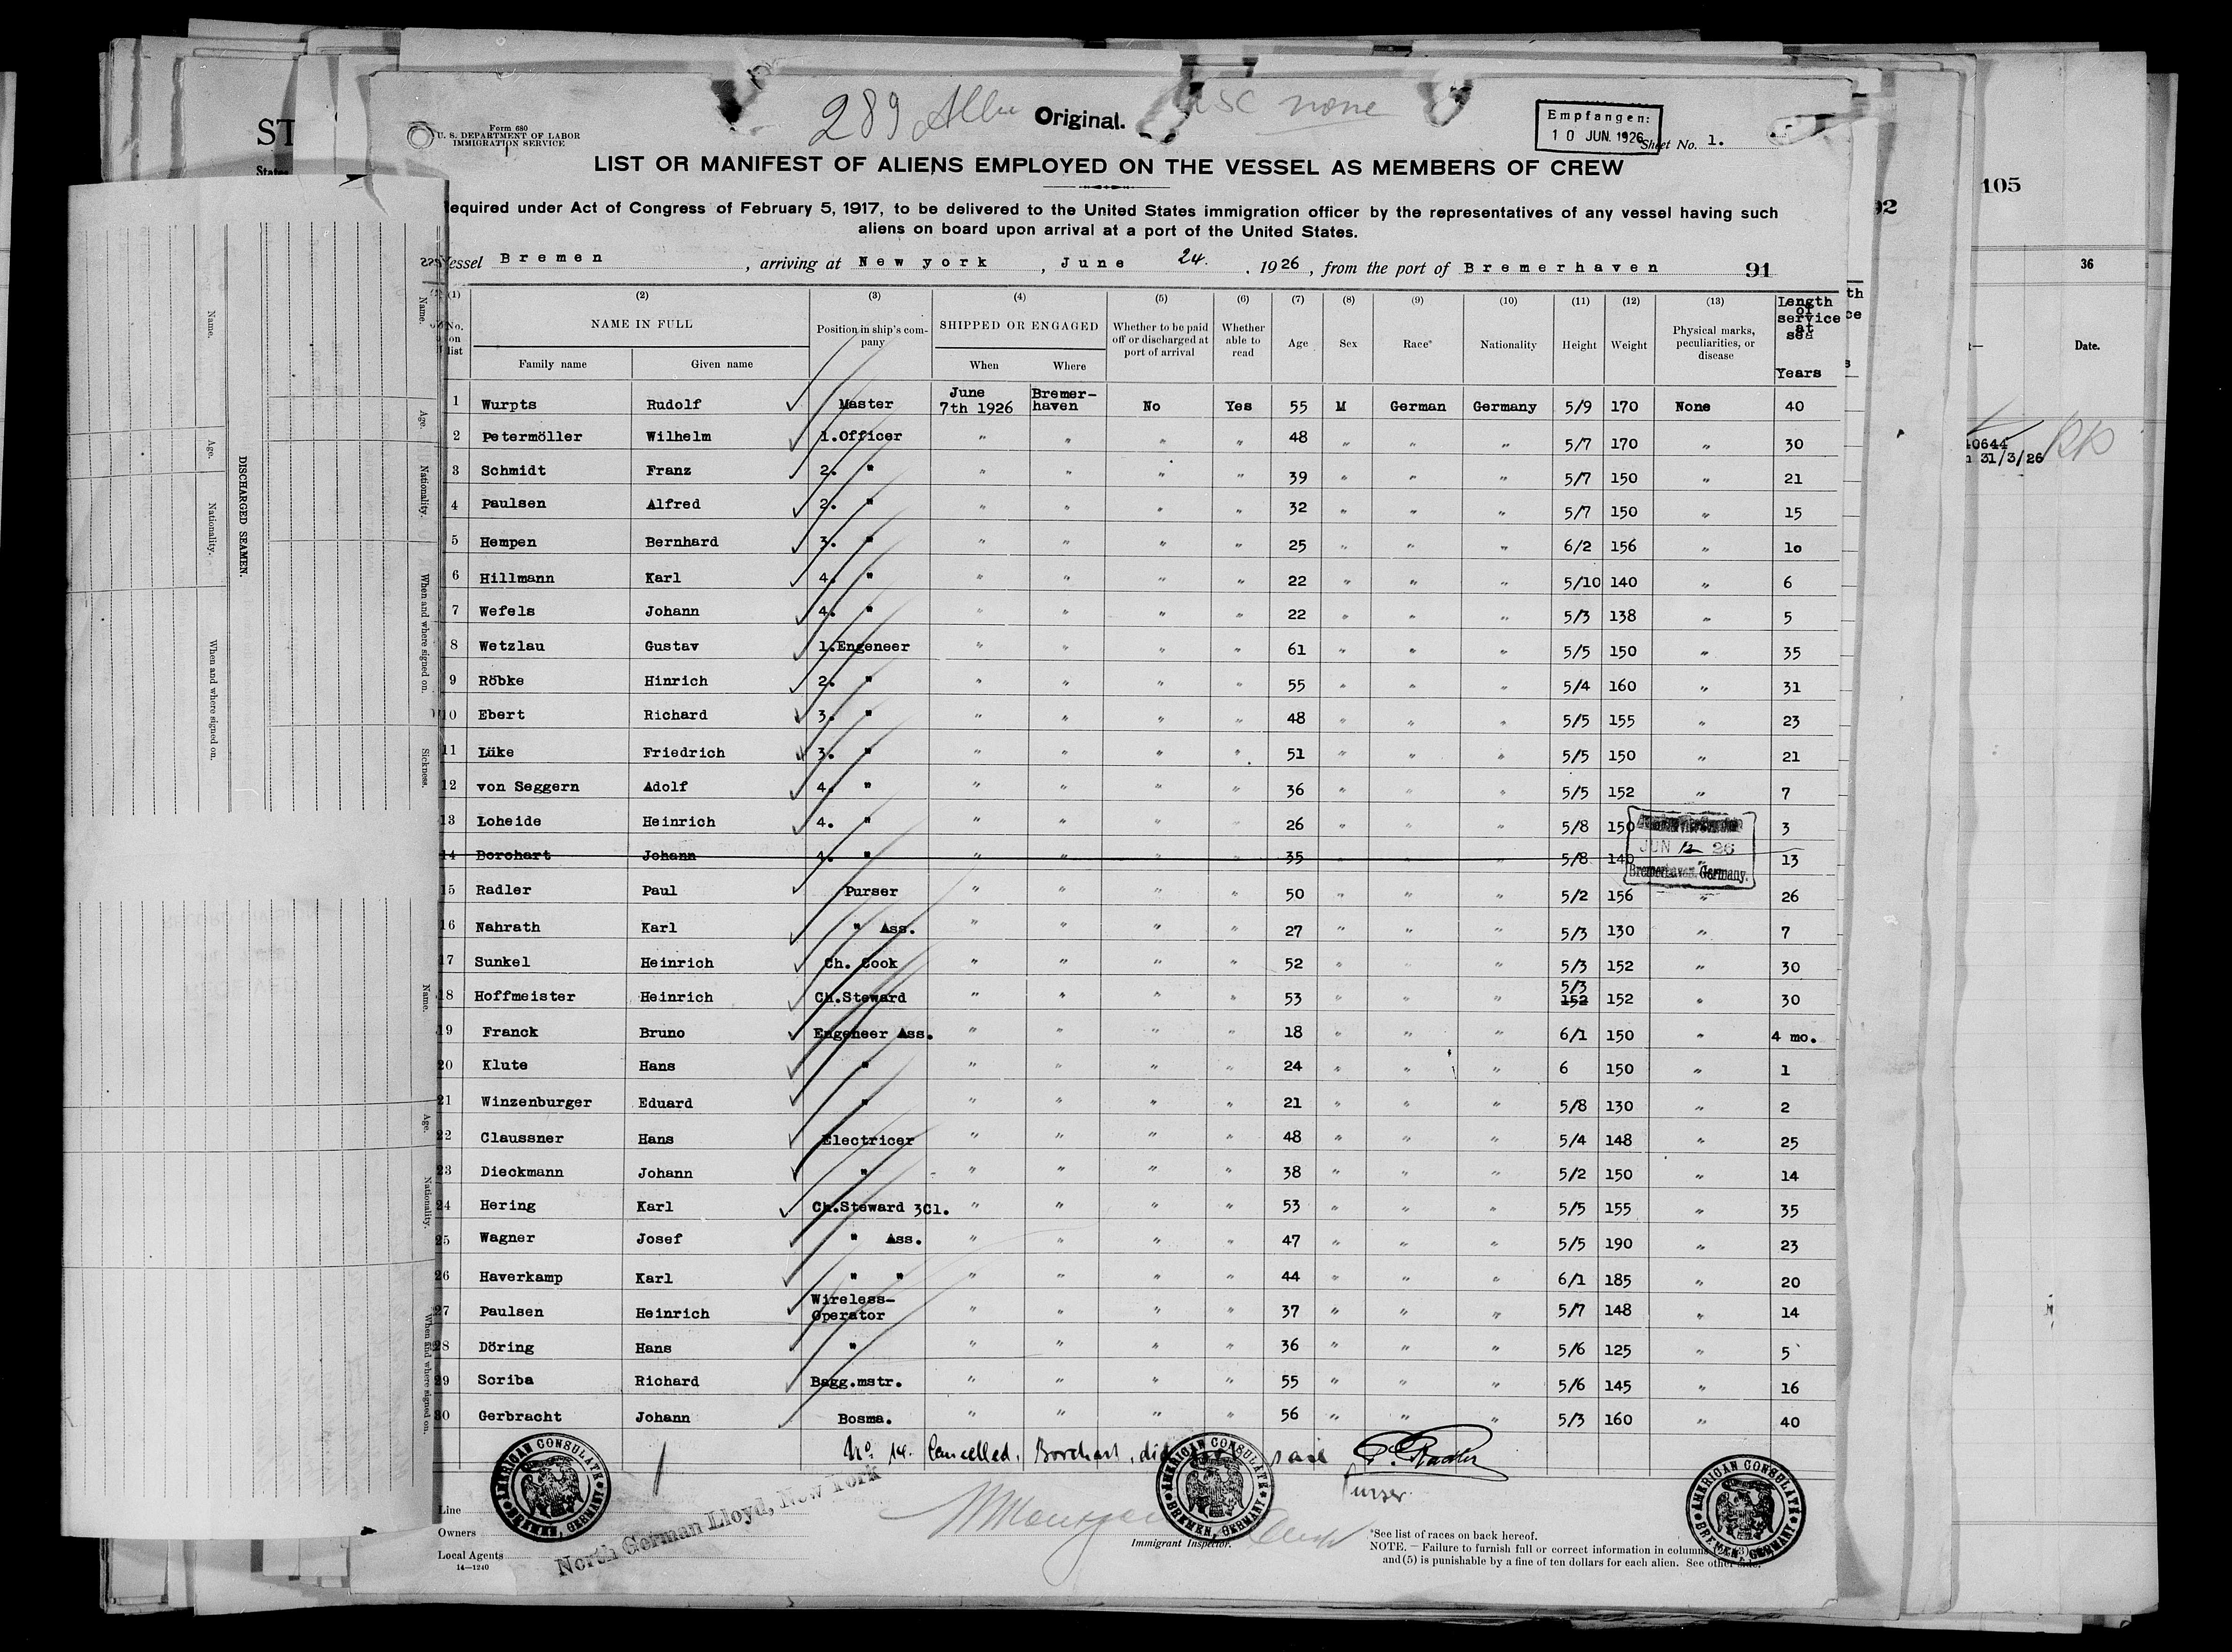 289
Original.
none
Empfangen:
10 JUN. 1926
Sheet No. 1.
Form 680
U. S. DEPARTMENT OF LABOR
IMMIGRATION SERVICE
LIST OR MANIFEST OF ALIENS EMPLOYED ON THE VESSEL AS MEMBERS OF CREW
equired under Act of Congress of February 5, 1917, to be delivered to the United States immigration officer by the representatives of any vessel having such
aliens on board upon arrival at a port of the United States.
essel Bremen, arriving at New york, June 24., 1926, from the port of Bremerhaven 91
(1) (2) (3) (4) (5) (6) (7) (8) (9) (10) (11) (12) (13)
No. on list NAME IN FULL Family name Given name Position in ship's company SHIPPED OR ENGAGED When Where Whether to be paid off or discharged at port of arrival Whether able to read Age Sex Race* Nationality Height Weight Physical marks, peculiarities, or disease Length of service at sea Years
1 Wurpts Rudolf Master June 7th 1926 Bremer-haven No Yes 55 M German Germany 5/9 170 None 40
2 Petermöller Wilhelm 1.Officer " " " " 48 " " " 5/7 170 " 30
3 Schmidt Franz 2. " " " " " 39 " " " 5/7 150 " 21
4 Paulsen Alfred 2. " " " " " 32 " " " 5/7 150 " 15
5 Hempen Bernhard 3. " " " " " 25 " " " 6/2 156 " 10
6 Hillmann Karl 4. " " " " " 22 " " " 5/10 140 " 6
7 Wefels Johann 4. " " " " " 22 " " " 5/3 138 " 5
8 Wetzlau Gustav 1.Engeneer " " " " 61 " " " 5/5 150 " 35
9 Röbke Hinrich 2. " " " " " 55 " " " 5/4 160 " 31
10 Ebert Richard 3. " " " " " 48 " " " 5/5 155 " 23
11 Lüke Friedrich 3. " " " " " 51 " " " 5/5 150 " 21
12 von Seggern Adolf 4. " " " " " 36 " " " 5/5 152 " 7
13 Loheide Heinrich 4. " " " " " 26 " " " 5/8 150 3
14 Borchart Johann 4. " " " " " 35 " " 5/8 140 " 13
JUN 12 26
Bremerhaven Germany.
15 Radler Paul Purser " " " " 50 " " " 5/2 156 " 26
16 Nahrath Karl " Ass. " " " " 27 " " " 5/3 130 " 7
17 Sunkel Heinrich Ch. Cook " " " " 52 " " " 5/3 152 " 30
18 Hoffmeister Heinrich Ch.Steward " " " " 53 " " " 5/3 152 152 " 30
19 Franck Bruno Engeneer Ass. " " " " 18 " " " 6/1 150 " 4 mo.
20 Klute Hans " " " " " 24 " " " 6 150 " 1
21 Winzenburger Eduard " " " " " 21 " " " 5/8 130 " 2
22 Claussner Hans Electricer " " " " 48 " " " 5/4 148 " 25
23 Dieckmann Johann " " " " " 38 " " " 5/2 150 " 14
24 Hering Karl Ch.Steward 3Cl. " " " " 53 " " " 5/5 155 " 35
25 Wagner Josef " Ass. " " " " 47 " " " 5/5 190 " 23
26 Haverkamp Karl " " " " " " 44 " " " 6/1 185 " 20
27 Paulsen Heinrich Wireless-Operator " " " " 37 " " " 5/7 148 " 14
28 Döring Hans " " " " " 36 " " " 5/6 125 " 5
29 Scriba Richard Bagg.mstr. " " " " 55 " " " 5/6 145 " 16
30 Gerbracht Johann Bosma. " " " " 56 " " " 5/3 160 " 40
No. 14. Cancelled. Borchart, did sail P. Radler
Purser.
AMERICAN CONSULATE BREMEN, GERMANY
AMERICAN CONSULATE BREMEN, GERMANY
AMERICAN CONSULATE BREMEN, GERMANY
Line
Owners
Local Agents
North German Lloyd, New York
14—1240
Immigrant Inspector.
*See list of races on back hereof.
NOTE. — Failure to furnish full or correct information in columns (2) (3)
and (5) is punishable by a fine of ten dollars for each alien. See other side.
DISCHARGED SEAMEN.
Name.
Age.
Nationality.
When and where signed on.
Name.
Age.
Nationality.
When and where signed on.
Sickness.
Name.
Age.
Nationality.
When and where signed on.
ST
States
92
105
36
Date.
40644
31/3/26